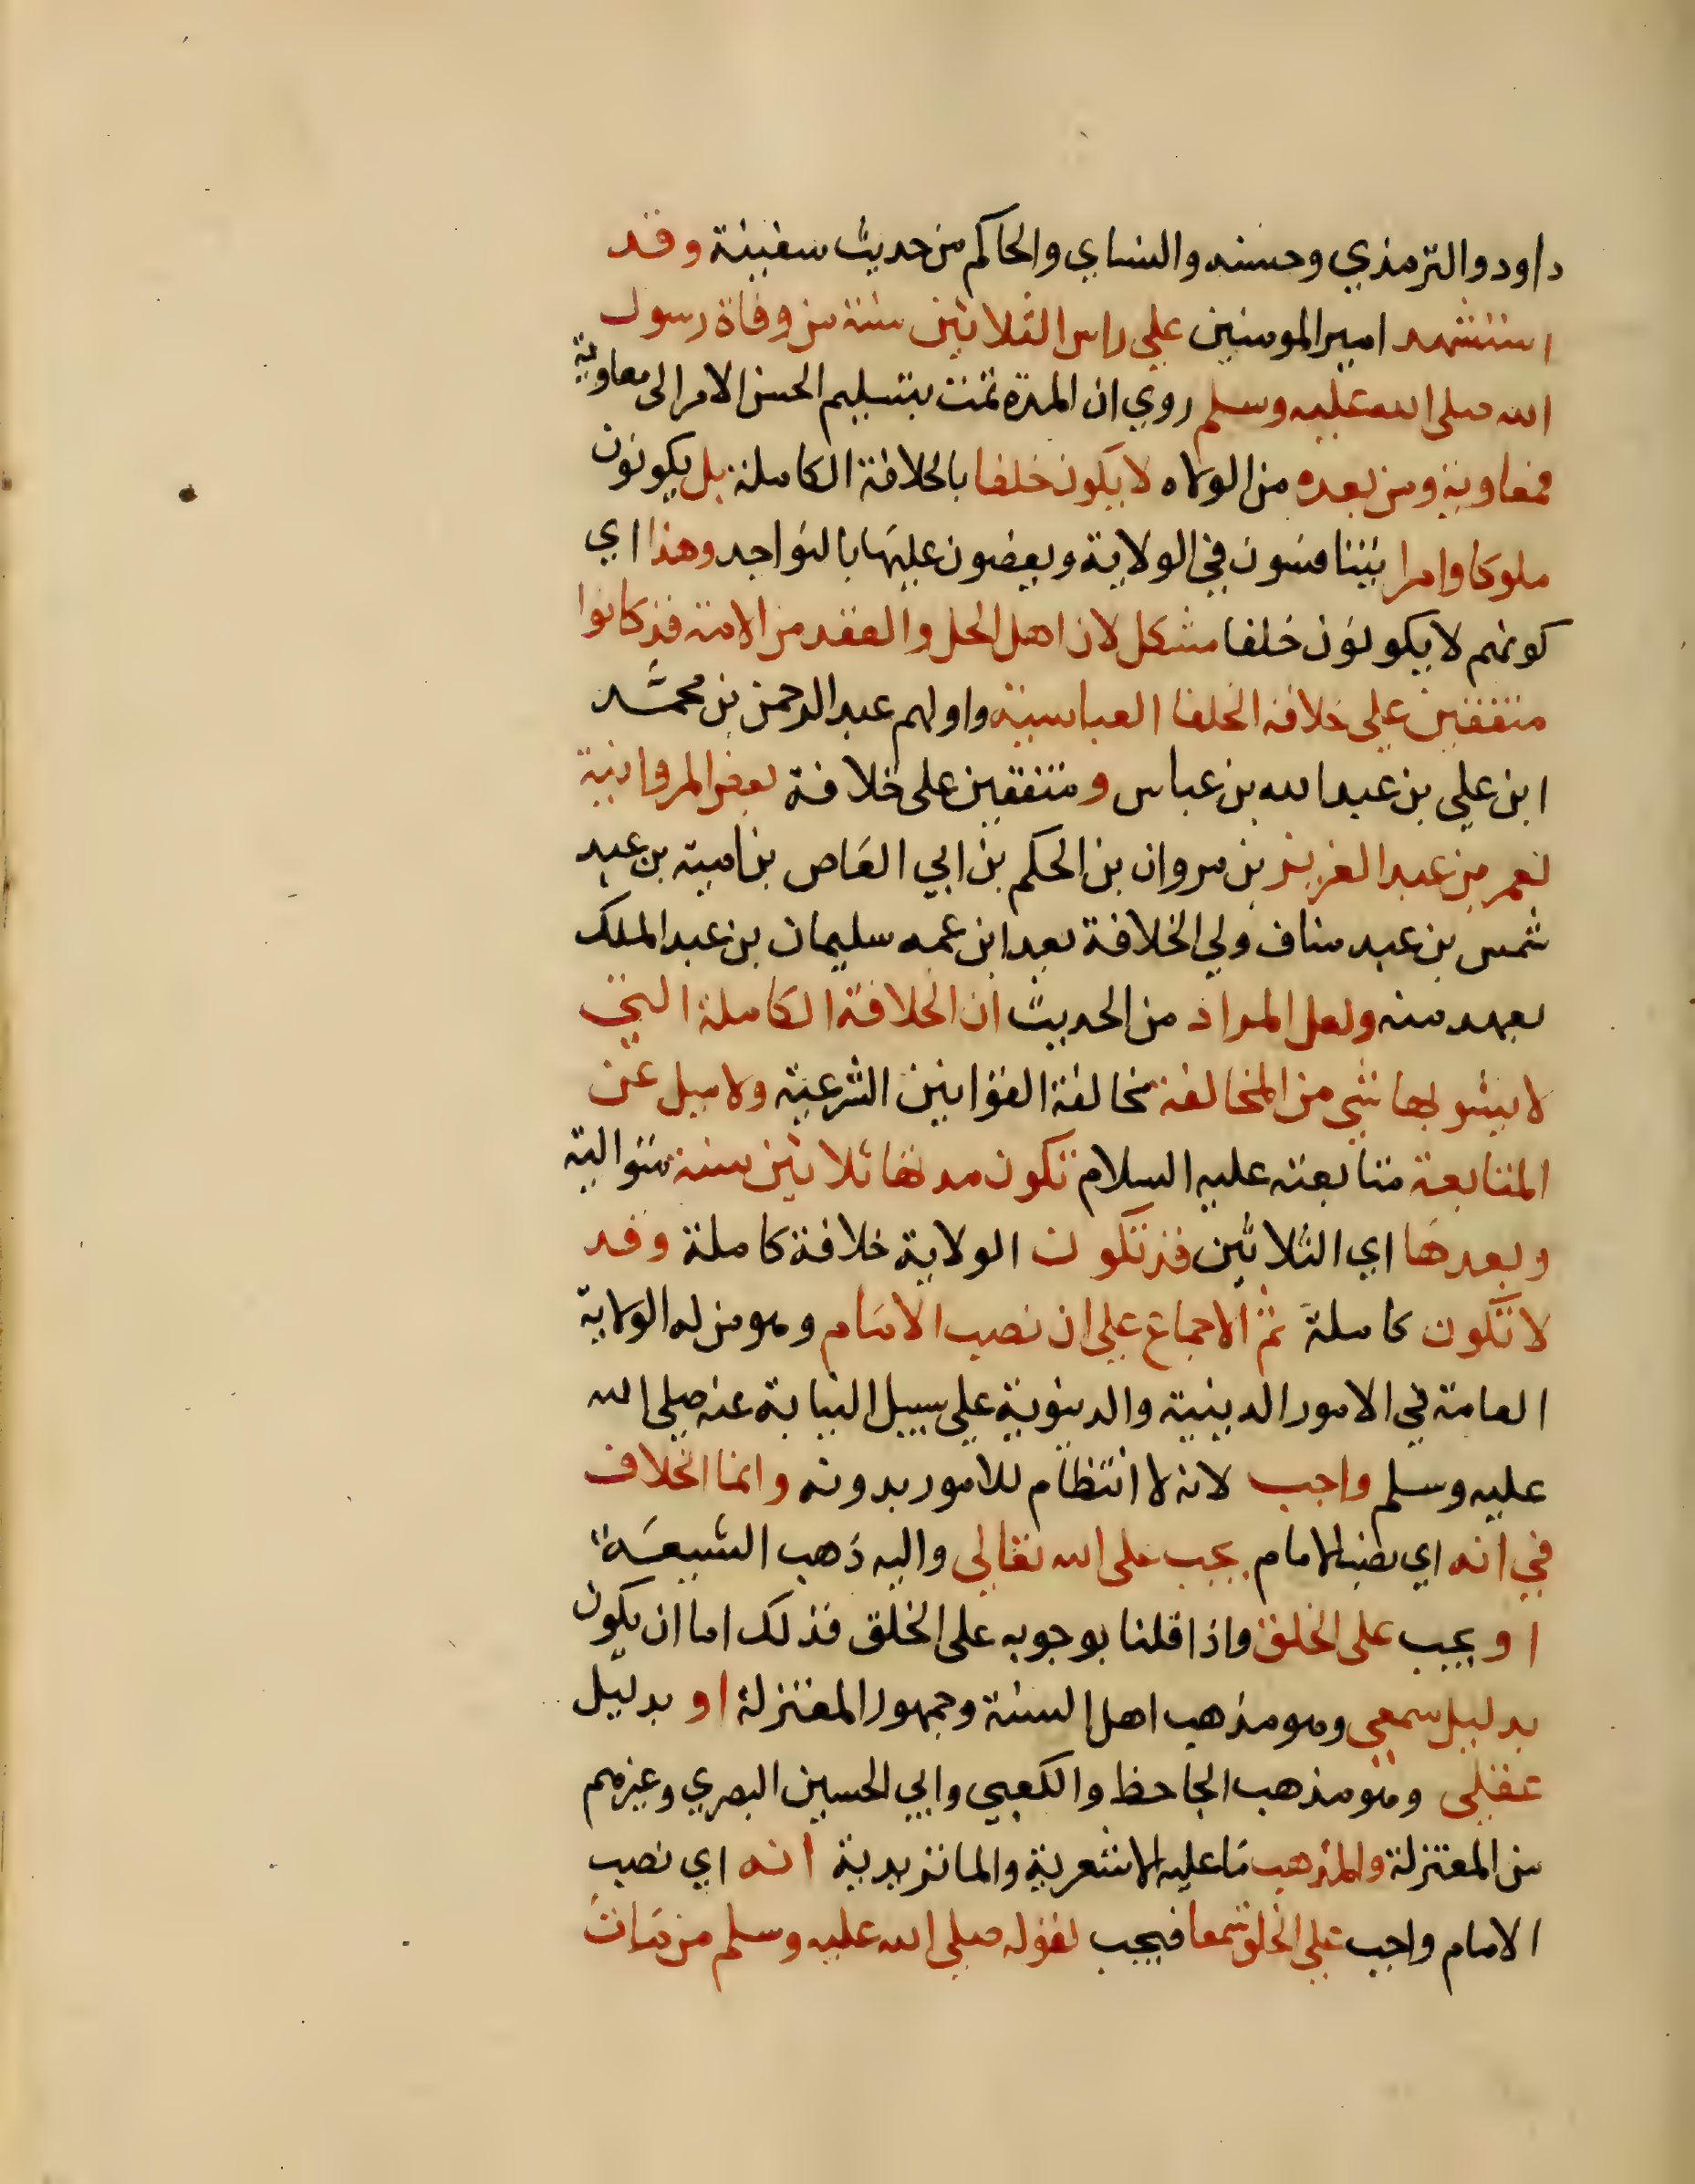 داود والترمذي وحسنه والنساي والحاكم من حديث سفينة وقد
استشهد امير المومنين علي راس الثلاثين سنة من وفاة رسول
الله صلى الله عليه وسلم روي ان المدة تمت بتسليم الحسن الامر الى معاوية
فمعاوية ومن بعده من الولاه لا يكون خلفا بالخلافة الكاملة بل يكونون
ملوكا وامرا يتنافسون في الولاية ويعضون عليها بالنواجد وهذا اي
كونهم لا يكونون خلفا مشكل لان اهل الحل والعقد من الامة قد كانوا
متفقين علي خلافة الخلفا العباسية واولهم عبد الرحمن بن محمد
ابن علي بن عبد الله بن عباس ومتفقين على خلافة بعض المروانية
كعمر بن عبد العزيز بن مروان بن الحكم بن ابي العاص بن امية بن عبد
شمس بن عبد مناف ولي الخلافة بعد ابن عمه سليمان بن عبد الملك
بعهد منه ولعل المراد من الحديث ان الخلافة الكاملة التي
لا يشوبها شي من المخالفة مخالفة القوانين الشرعية ولا ميل عن
المتابعة متابعته عليه السلام تكون مدتها ثلاثين سنة متوالية
وبعدها اي الثلاثين قد تكون الولاية خلافة كاملة وقد
لا تكون كاملة ثم الاجماع علي ان نصب الامام وهو من له الولاية
العامة في الامور الدينية والدينوية علي سبيل النيابة عنه صلى الله
عليه وسلم واجب لانه لا انتظام للامور بدونه وانما الخلاف
في انه اي نصب الامام يجب على الله تعالى واليه ذهب الشيعة
او يجب على الخلق واذا قلنا بوجوبه على الخلق فذلك اما ان يكون
بدليل سمعي وهو مذهب اهل السنة وجمهور المعتزلة او بدليل
عقلي وهو مذهب الجاحظ والكعبي وابي الحسين البصري وغيرهم
من المعتزلة والمذهب ما عليه الاشعرية والماتريدية انه اي نصب
الامام واجب علي الخلق سمعا فيجب لقوله صلى الله عليه وسلم من مات